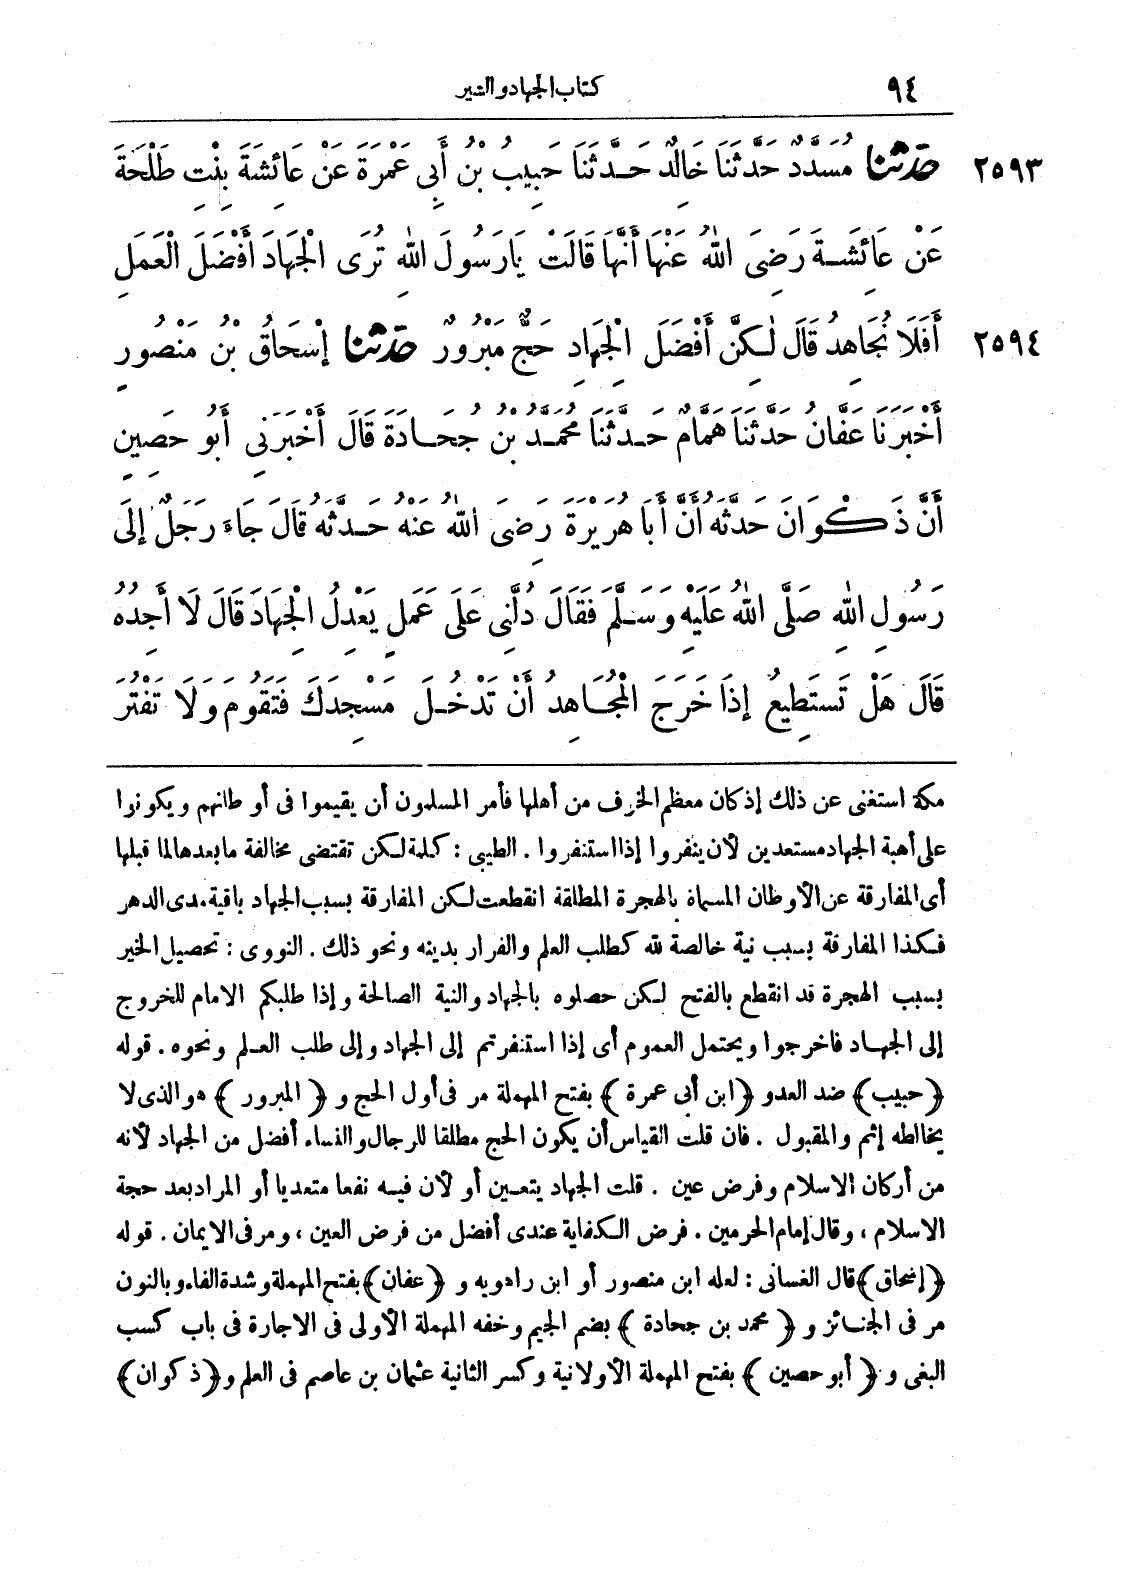 ٩٤
كتاب الجهاد والسير
٢٥٩٣ حَدَّثَنَا مُسَدَّدٌ حَدَّثَنَا خَالِدٌ حَدَّثَنَا حَبِيبُ بْنُ أَبِى عَمْرَةَ عَنْ عَائِشَةَ بِنْتِ طَلْحَةَ
عَنْ عَائِشَةَ رَضِىَ اللّٰهُ عَنْهَا أَنَّهَا قَالَتْ يَارَسُولَ اللّٰهِ تُرَى الْجِهَادَ أَفْضَلَ الْعَمَلِ
٢٥٩٤ أَفَلَا نُجَاهِدُ قَالَ لٰكِنَّ أَفْضَلَ الْجِهَادِ حَجٌّ مَبْرُورٌ حَدَّثَنَا إِسْحَاقُ بْنُ مَنْصُورٍ
أَخْبَرَنَا عَفَّانُ حَدَّثَنَا هَمَّامٌ حَدَّثَنَا مُحَمَّدُ بْنُ جُحَادَةَ قَالَ أَخْبَرَنِى أَبُو حَصِينٍ
أَنَّ ذَكْوَانَ حَدَّثَهُ أَنَّ أَبَا هُرَيْرَةَ رَضِىَ اللّٰهُ عَنْهُ حَدَّثَهُ قَالَ جَاءَ رَجُلٌ إِلَى
رَسُولِ اللّٰهِ صَلَّى اللّٰهُ عَلَيْهِ وَسَلَّمَ فَقَالَ دُلَّنِى عَلَى عَمَلٍ يَعْدِلُ الْجِهَادَ قَالَ لَا أَجِدُهُ
قَالَ هَلْ تَسْتَطِيعُ إِذَا خَرَجَ الْمُجَاهِدُ أَنْ تَدْخُلَ مَسْجِدَكَ فَتَقُومَ وَلَا تَفْتُرَ
مكة استغنى عن ذلك إذ كان معظم الخوف من أهلها فأمر المسلمون أن يقيموا فى أو طانهم ويكونوا
على أهبة الجهاد مستعدين لأن ينفروا إذا استنفروا . الطيبى : كلمة لكن تقتضى مخالفة ما بعدها لما قبلها
أى المفارقة عن الأوطان المسماة بالهجرة المطلقة انقطعت لكن المفارقة بسبب الجهاد باقية مدى الدهر
فكذا المفارقة بسبب نية خالصة لله كطلب العلم والفرار بدينه ونحو ذلك . النووى : تحصيل الخير
بسبب الهجرة قد انقطع بالفتح لكن حصلوه بالجهاد والنية الصالحة وإذا طلبكم الامام للخروج
إلى الجهاد فاخرجوا ويحتمل العموم أى إذا استنفرتم إلى الجهاد وإلى طلب العلم ونحوه . قوله
﴿حبيب﴾ ضد العدو ﴿ابن أبى عمرة﴾ بفتح المهملة مر فى أول الحج و ﴿المبرور﴾ هو الذى لا
يخالطه إثم والمقبول . فان قلت القياس أن يكون الحج مطلقا للرجال والنساء أفضل من الجهاد لأنه
من أركان الاسلام وفرض عين . قلت الجهاد يتعين أو لأن فيه نفعا متعديا أو المراد بعد حجة
الاسلام ، وقال إمام الحرمين . فرض الكفاية عندى أفضل من فرض العين ، ومر فى الايمان . قوله
﴿إسحاق﴾ قال الغسانى : لعله ابن منصور أو ابن راهويه و ﴿عفان﴾ بفتح المهملة وشدة الفاء وبالنون
مر فى الجنائز و ﴿محمد بن جحادة﴾ بضم الجيم وخفه المهملة الأولى فى الاجارة فى باب كسب
البغى و ﴿أبو حصين﴾ بفتح المهملة الأولانية وكسر الثانية عثمان بن عاصم فى العلم و ﴿ذكوان﴾